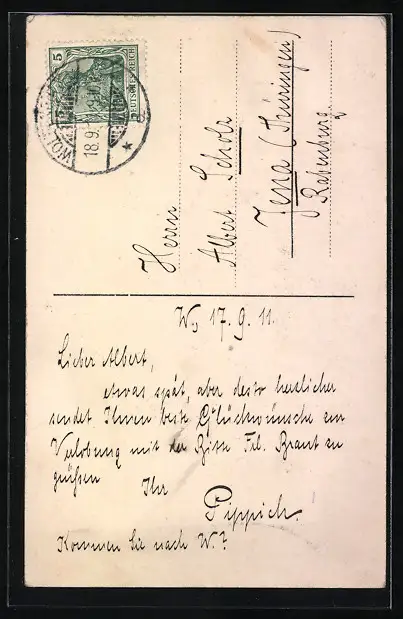 5
DEUTSCHES REICH
18.9.
Herrn
Albert Scholz
Jena (Thüringen)
W., 17. 9. 11.
Lieber Albert,
etwas spät, aber desto herzlicher
sendet Ihnen beste Glückwünsche zur
Verlobung mit der Bitte Frl. Braut zu
grüßen
Ihr
Pippich.
Kommen Sie nach W.?